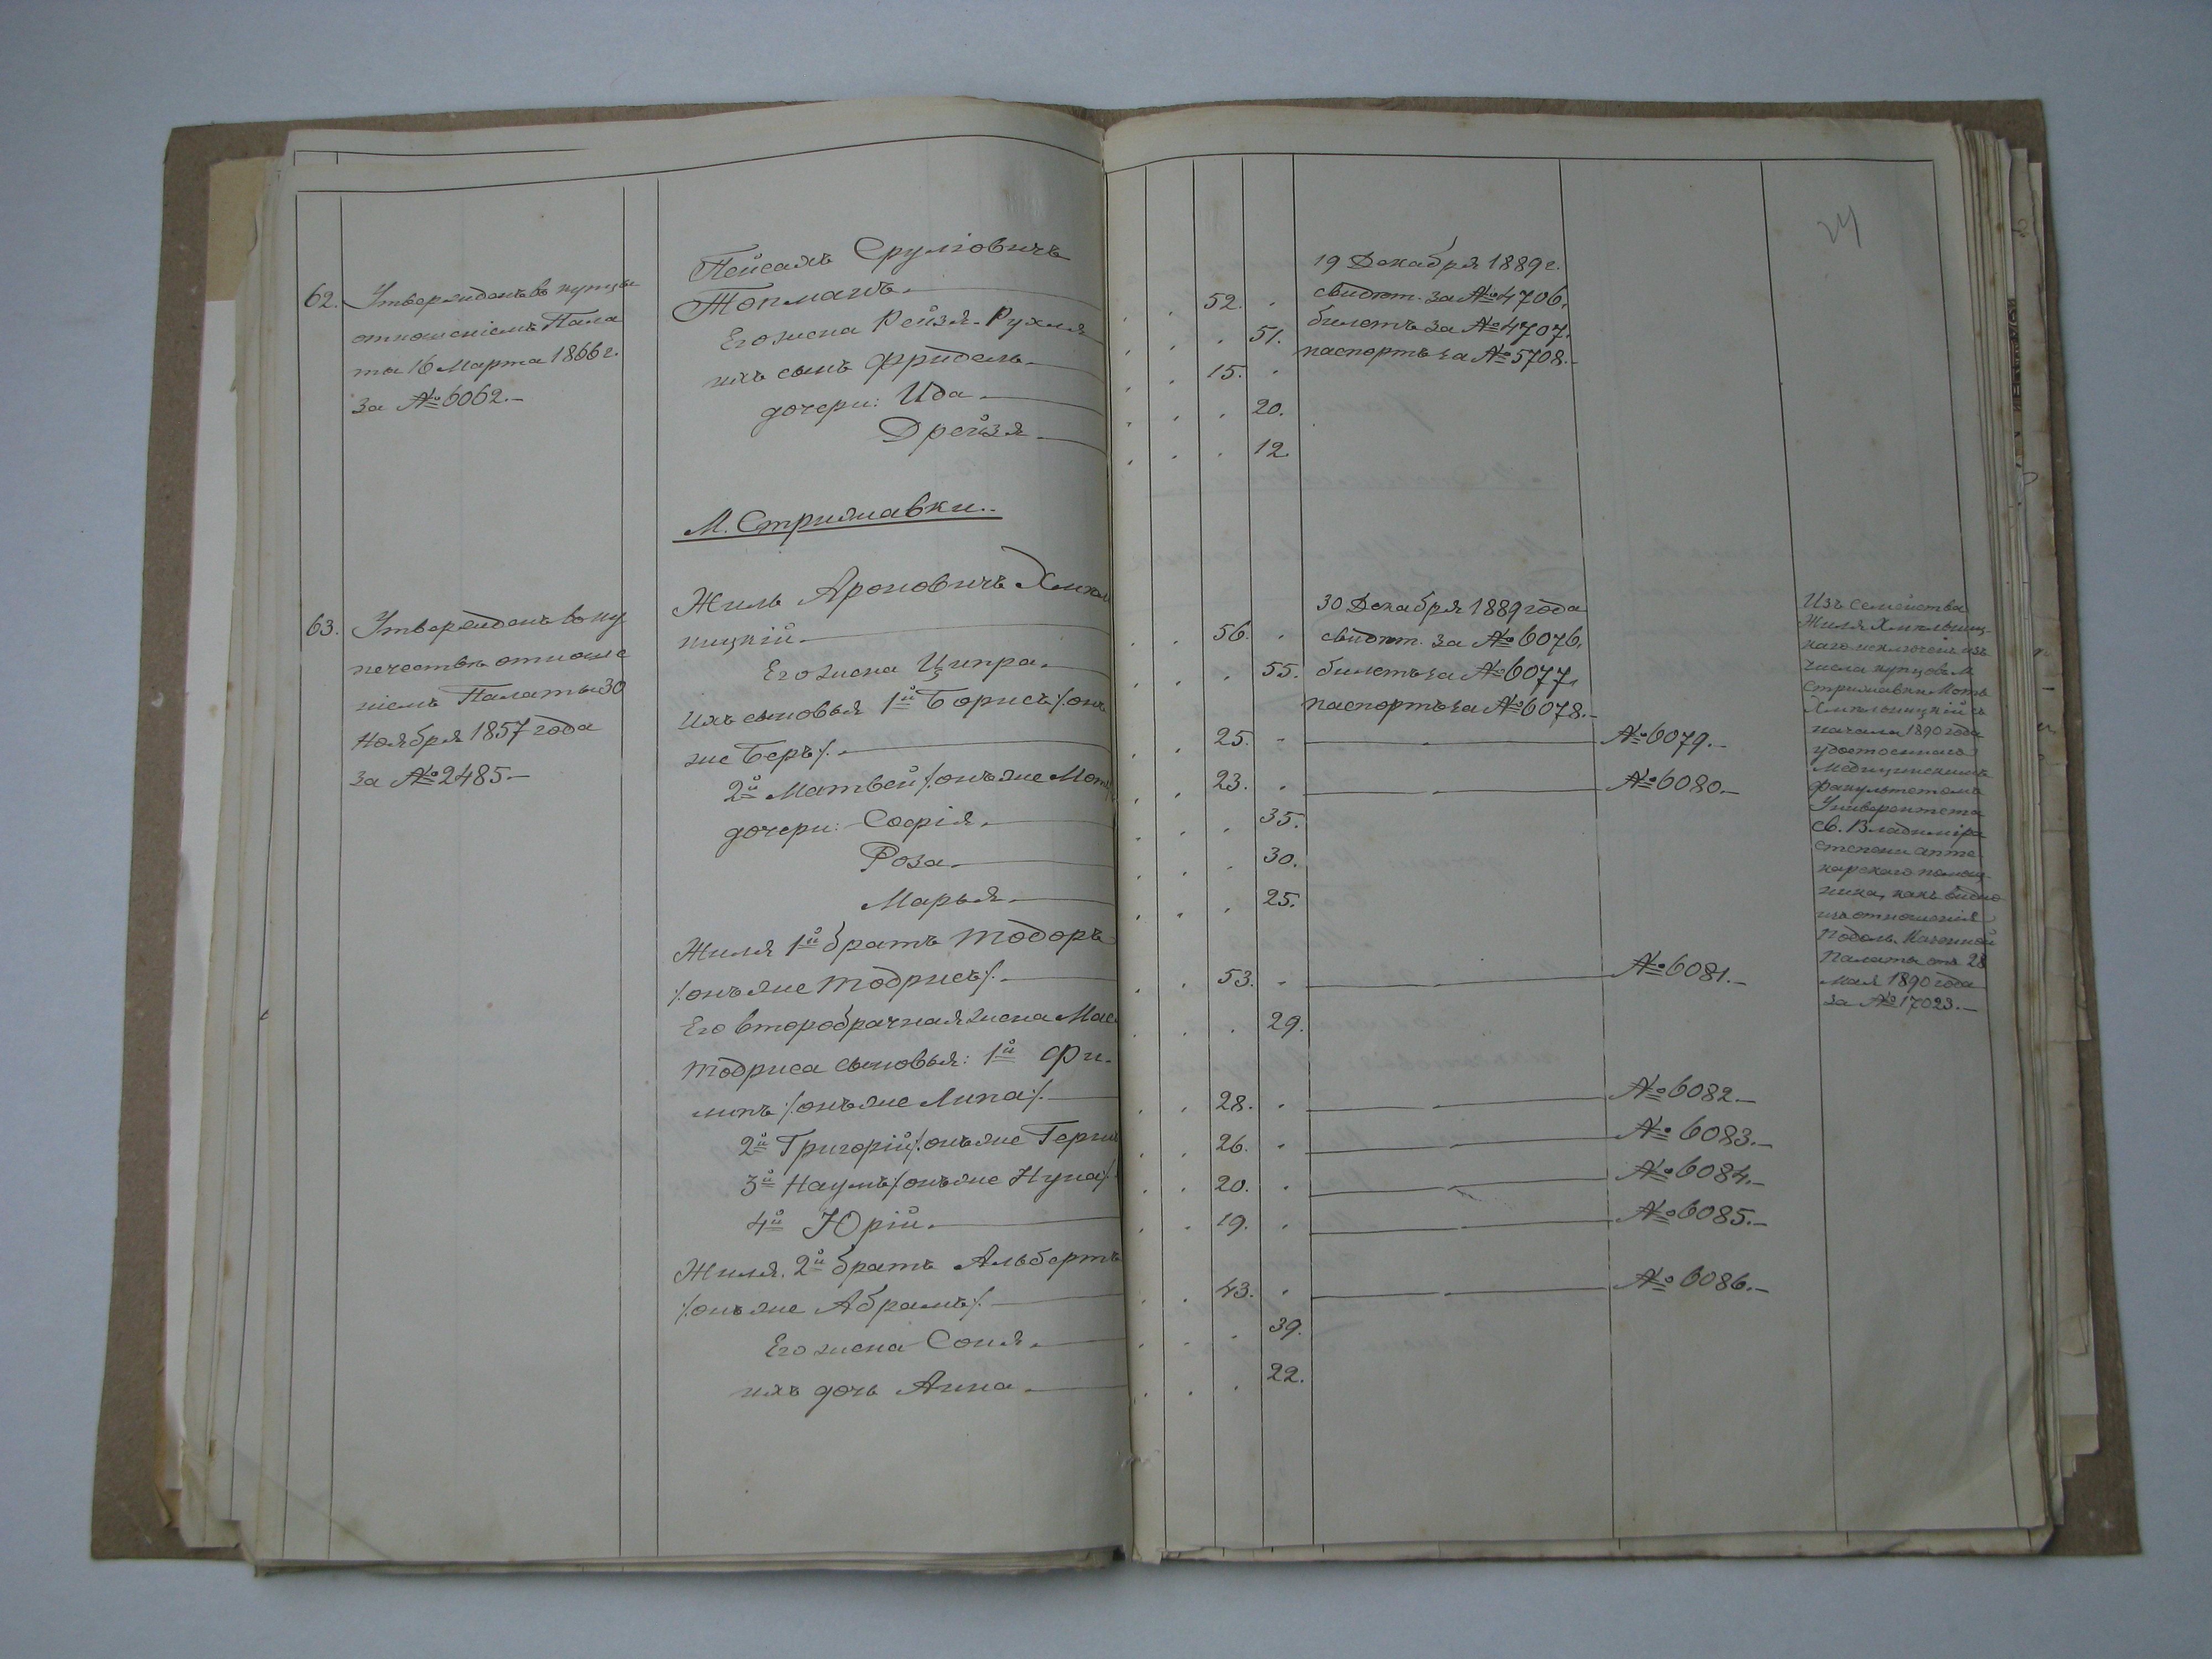 24
62. Утвержденъ въ купцы
отношеніемъ Пала
ты 16 Марта 1866 г.
за № 6062.-
Пейсахъ Сруліовичъ
Топманъ.
Его жена Рейзя-Рухля
ихъ сынъ Фридель
дочери: Ида.
Дрейзя
52.
51.
15.
20.
12.
19 Декабря 1889 г.
свидѣт. за № 4706.
билетъ за № 4707.
паспортъ за № 5708.-
М. Стрижавки.
63. Утвержденъ въ ку
печество отноше
ніемъ Палаты 30
Ноября 1857 года
за № 2485.-
Жиль Ароновичъ Хмѣль
ницкій
Его жена Ципра.
Ихъ сыновья 1й Борисъ /:онъ
же Беръ:/.
2й Матвей /:онъ же Мот
дочери: Софія.
Роза.
Марья.
Жиля 1й братъ Тодоръ
/:онъ же Тодрисъ:/.
Его второбрачная жена Мас
Тодриса сыновья: 1й Фи-
липъ /:онъ же Липа:/.
2й Григорій /:онъ же Герш
3й Наумъ /:онъ же Нуна:/.
4й Юрій.
Жиля 2й братъ Альбертъ
/:онъ же Абрамъ:/.
Его жена Соня.
ихъ дочь Анна.
56.
55.
25.
23.
35.
30.
25.
53.
29.
28.
26.
20.
19.
43.
39.
22.
30 Декабря 1889 года
свидѣт. за № 6076.
билетъ за № 6077.
паспортъ за № 6078.-
№ 6079.-
№ 6080.-
№ 6081.-
№ 6082.-
№ 6083.-
№ 6084.-
№ 6085.-
№ 6086.-
Изъ семейства
Жиля Хмѣльниц-
каго исключенъ изъ
числа купцовъ м.
Стрижавки Моть
Хмѣльницкій съ
начала 1890 года
удостоеннаго
Медицинскимъ
факультетомъ
Университета
Св. Владиміра
степени апте-
карскаго помощ-
ника, какъ видно
изъ отношенія
Подоль. Казенной
Палаты отъ 28
Мая 1890 года
за № 17023.-